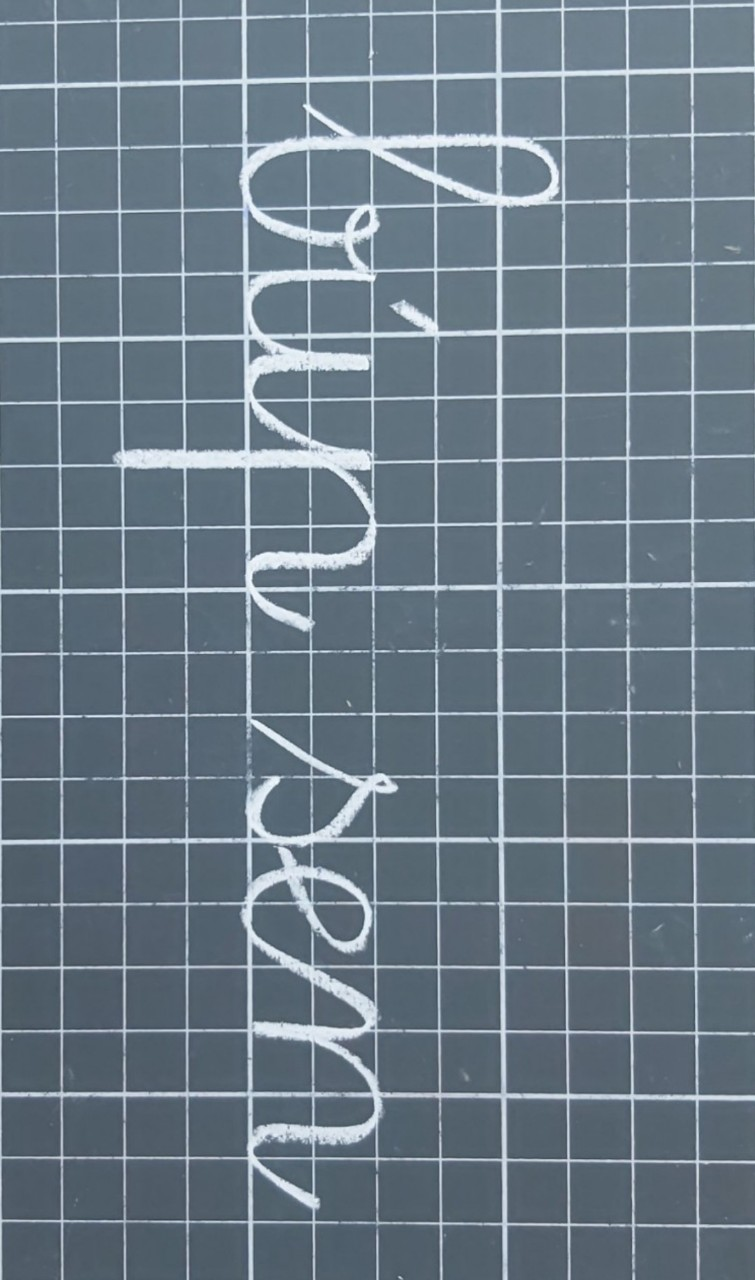 búp sen